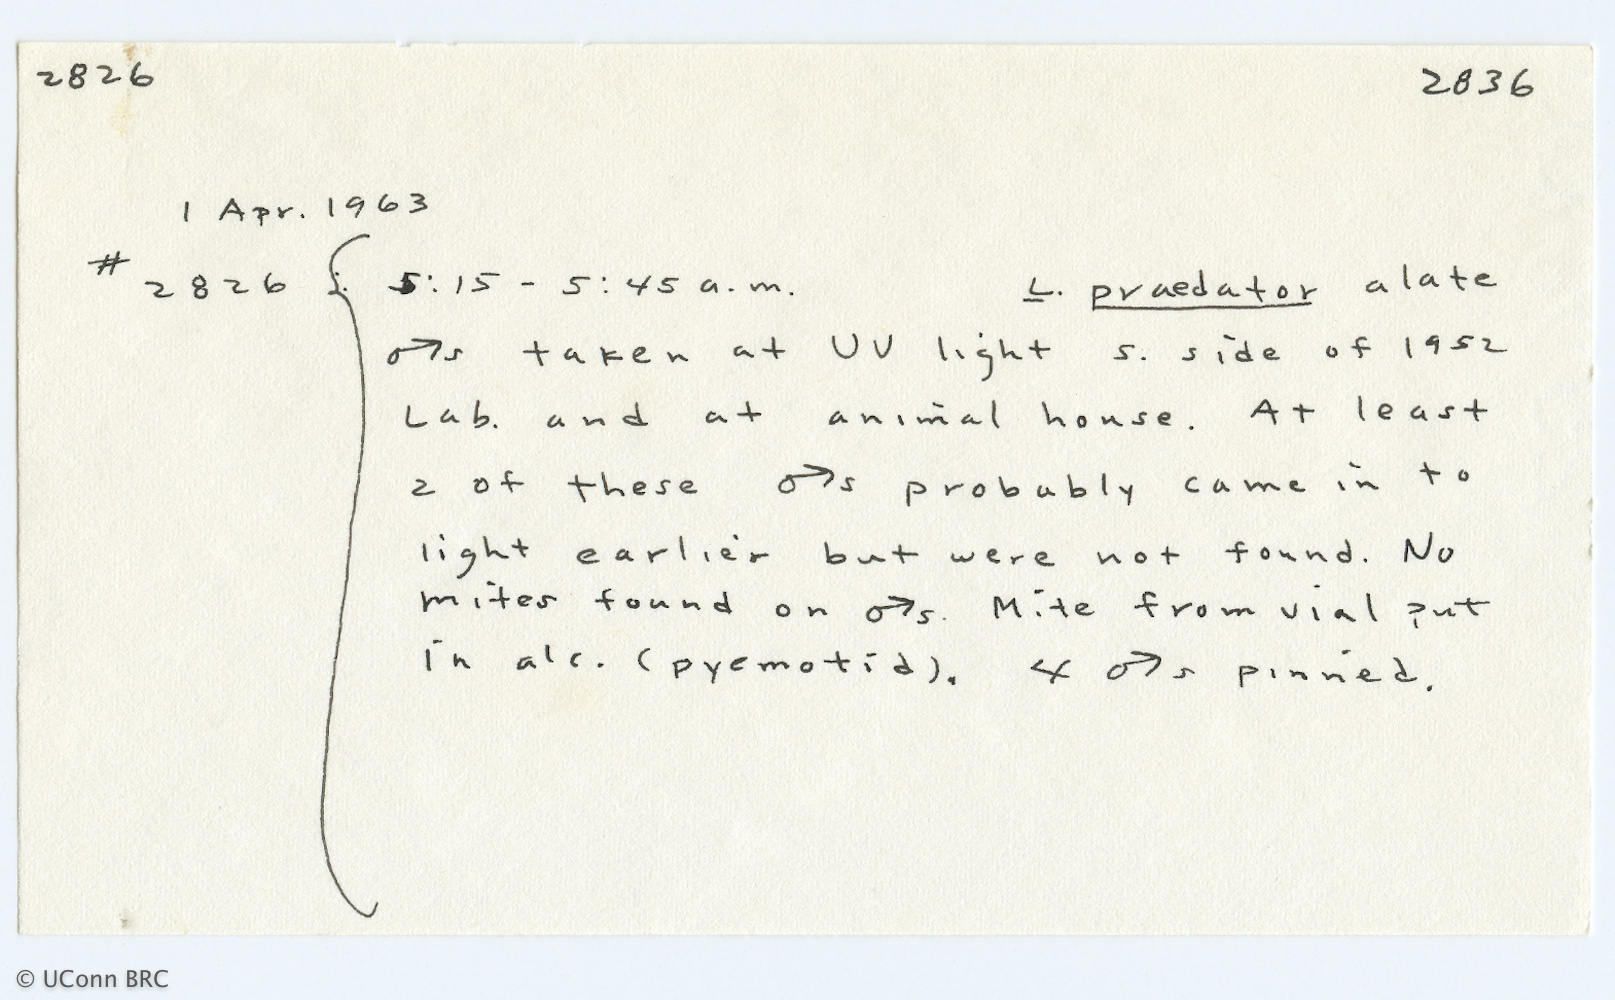 2826 2836
1 Apr. 1963
# 2826 : 5:15 - 5:45 a.m. L. praedator alate
♂s taken at UV light s. side of 1952
Lab. and at animal house. At least
2 of these ♂s probably came in to
light earlier but were not found. No
mites found on ♂s. Mite from vial put
in alc. (pyemotid). 4 ♂s pinned.
© UConn BRC